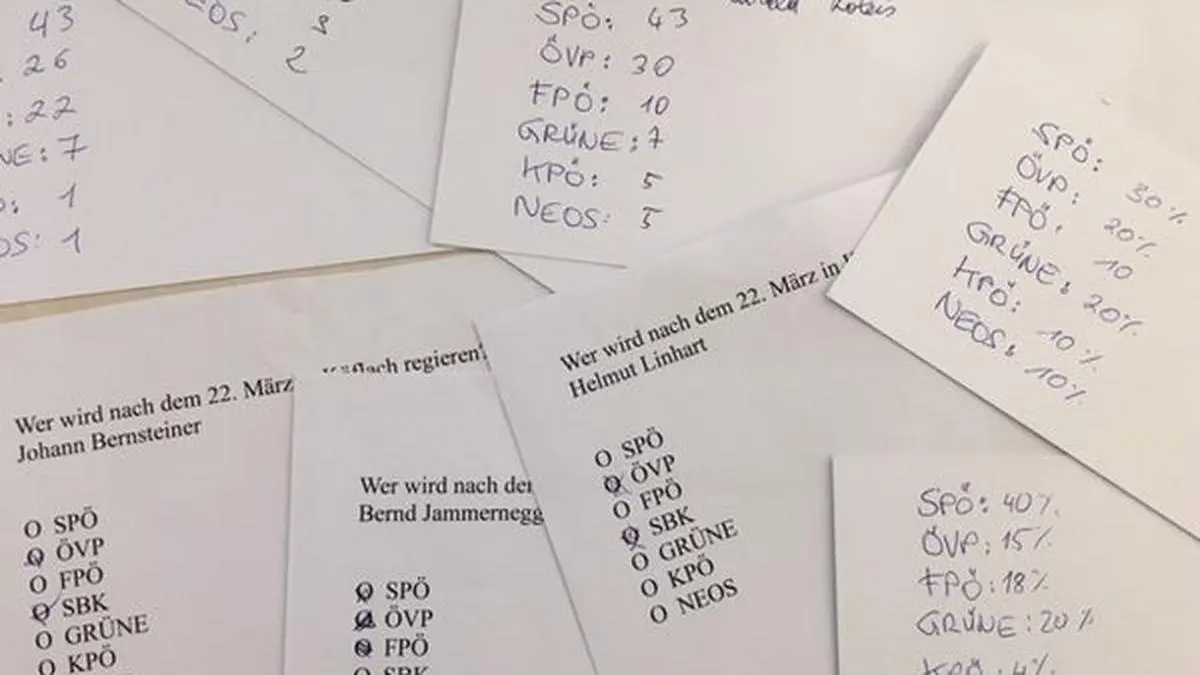 43
26
: 22
NE: 7
: 1
OS: 1
EOS:
2
SPÖ: 43
ÖVP: 30
FPÖ: 10
GRÜNE: 7
KPÖ: 5
NEOS: 5
SPÖ: 30%
ÖVP: 20%
FPÖ: 10
GRÜNE: 20%
KPÖ: 10%
NEOS: 10%
Wer wird nach dem 22. März
Johann Bernsteiner
O SPÖ
O ÖVP
O FPÖ
O SBK
O GRÜNE
O KPÖ
regieren?
Wer wird nach der
Bernd Jammernegg
O SPÖ
O ÖVP
O FPÖ
O SBK
Wer wird nach dem 22. März in
Helmut Linhart
O SPÖ
O ÖVP
O FPÖ
O SBK
O GRÜNE
O KPÖ
O NEOS
SPÖ: 40%
ÖVP: 15%
FPÖ: 18%
GRÜNE: 20%
KPÖ: 4%